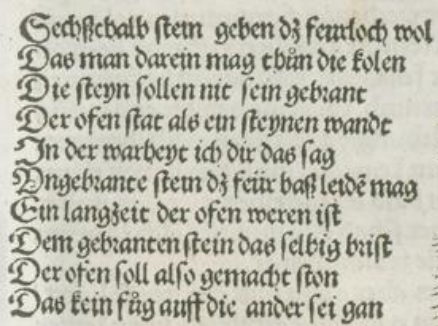 Sechſtehalb ſtein geben dʒ feurloch wol
Das man darein mag thůn die kolen
Die ſteyn ſollen nit ſein gebrant
Der ofen ſtat als ein ſteynen wandt
In der warheyt ich dir das ſag
Vngebrante ſtein dʒ feür baß leidẽ mag
Ein langzeit der ofen weren iſt
Dem gebranten ſtein das ſelbig briſt
Der ofen ſoll alſo gemacht ſton
Das kein fůg auff die ander ſei gan